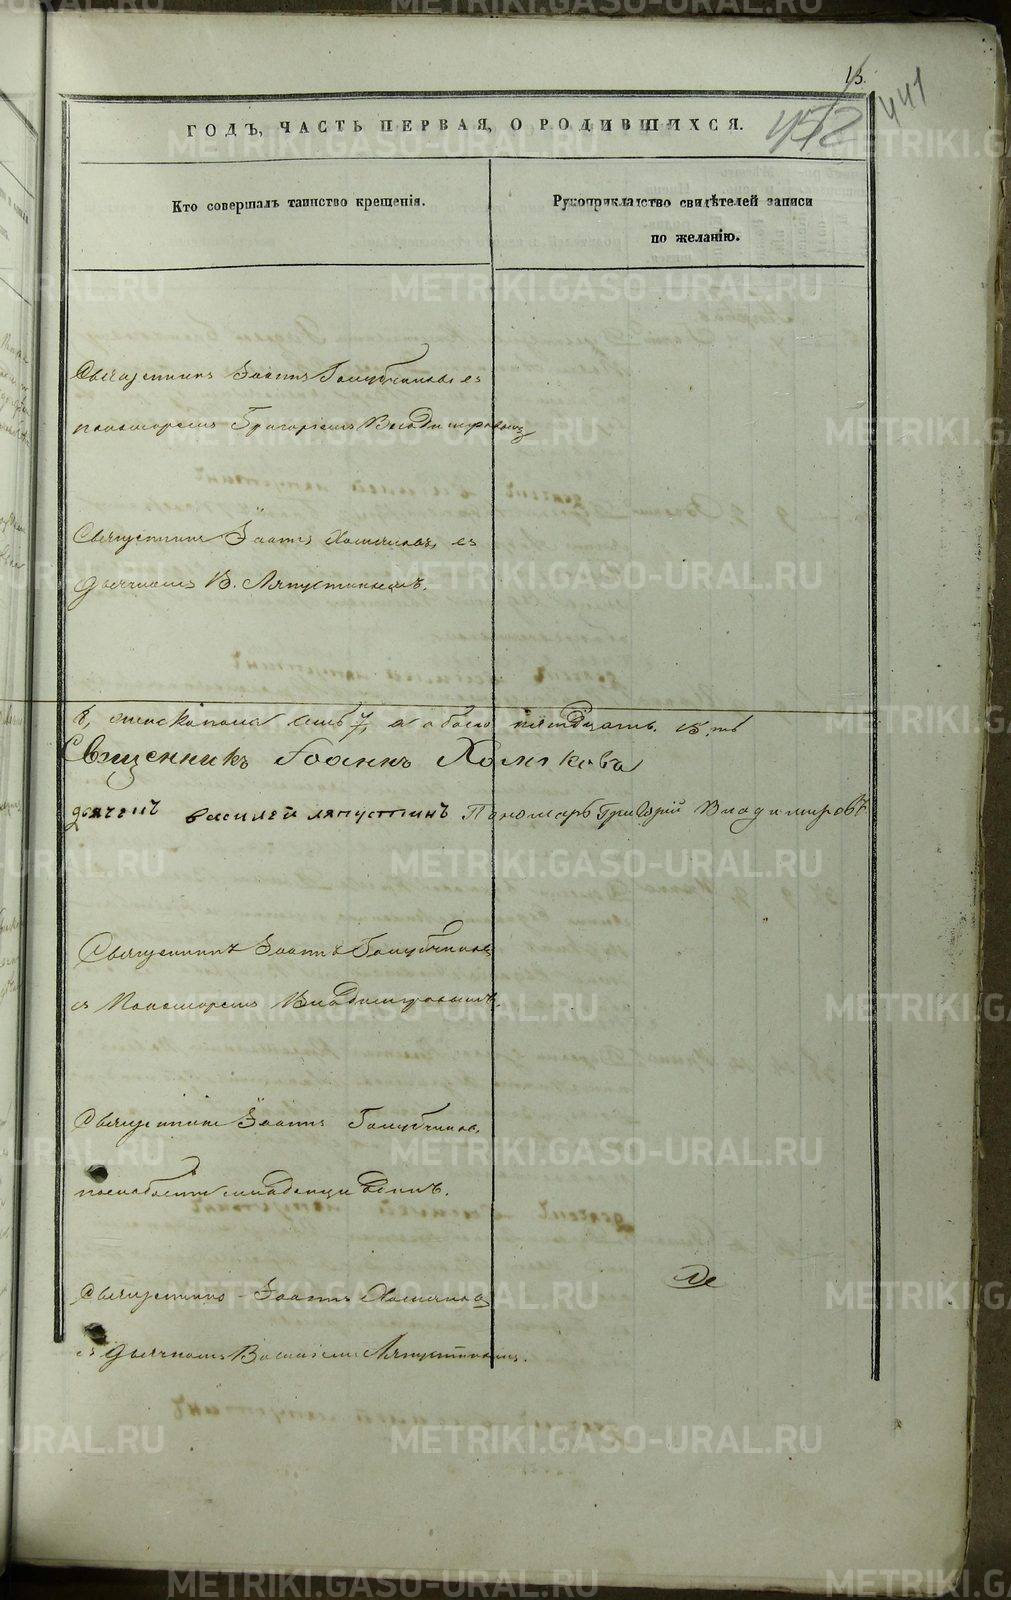 13.
441
452
ГОДЪ, ЧАСТЬ ПЕРВАЯ, О РОДИВШИХСЯ.
Кто совершалъ таинство крещенія.
Рукоприкладство свидѣтелей записи
по желанію.
Священникъ Іоаннъ Голубчиковъ съ
пономаремъ Григоріемъ Владимировымъ
Священникъ Іоаннъ Хомяковъ съ
дьячкомъ В. Ляпустинымъ.
а обоего пятнадцать. 15.ть
Священникъ Іоаннъ Хомяковъ
дьячекъ василей ляпустинъ Пономарь Григорій Владимировъ
Священникъ Іоаннъ Голубчиковъ
съ Пономаремъ Владимировымъ.
Священникъ Іоаннъ Голубчиковъ
младенца одинъ.
Священникъ Іоаннъ Хомяковъ
съ дьячкомъ Василіемъ Ляпустинымъ.
METRIKI.GASO-URAL.RU